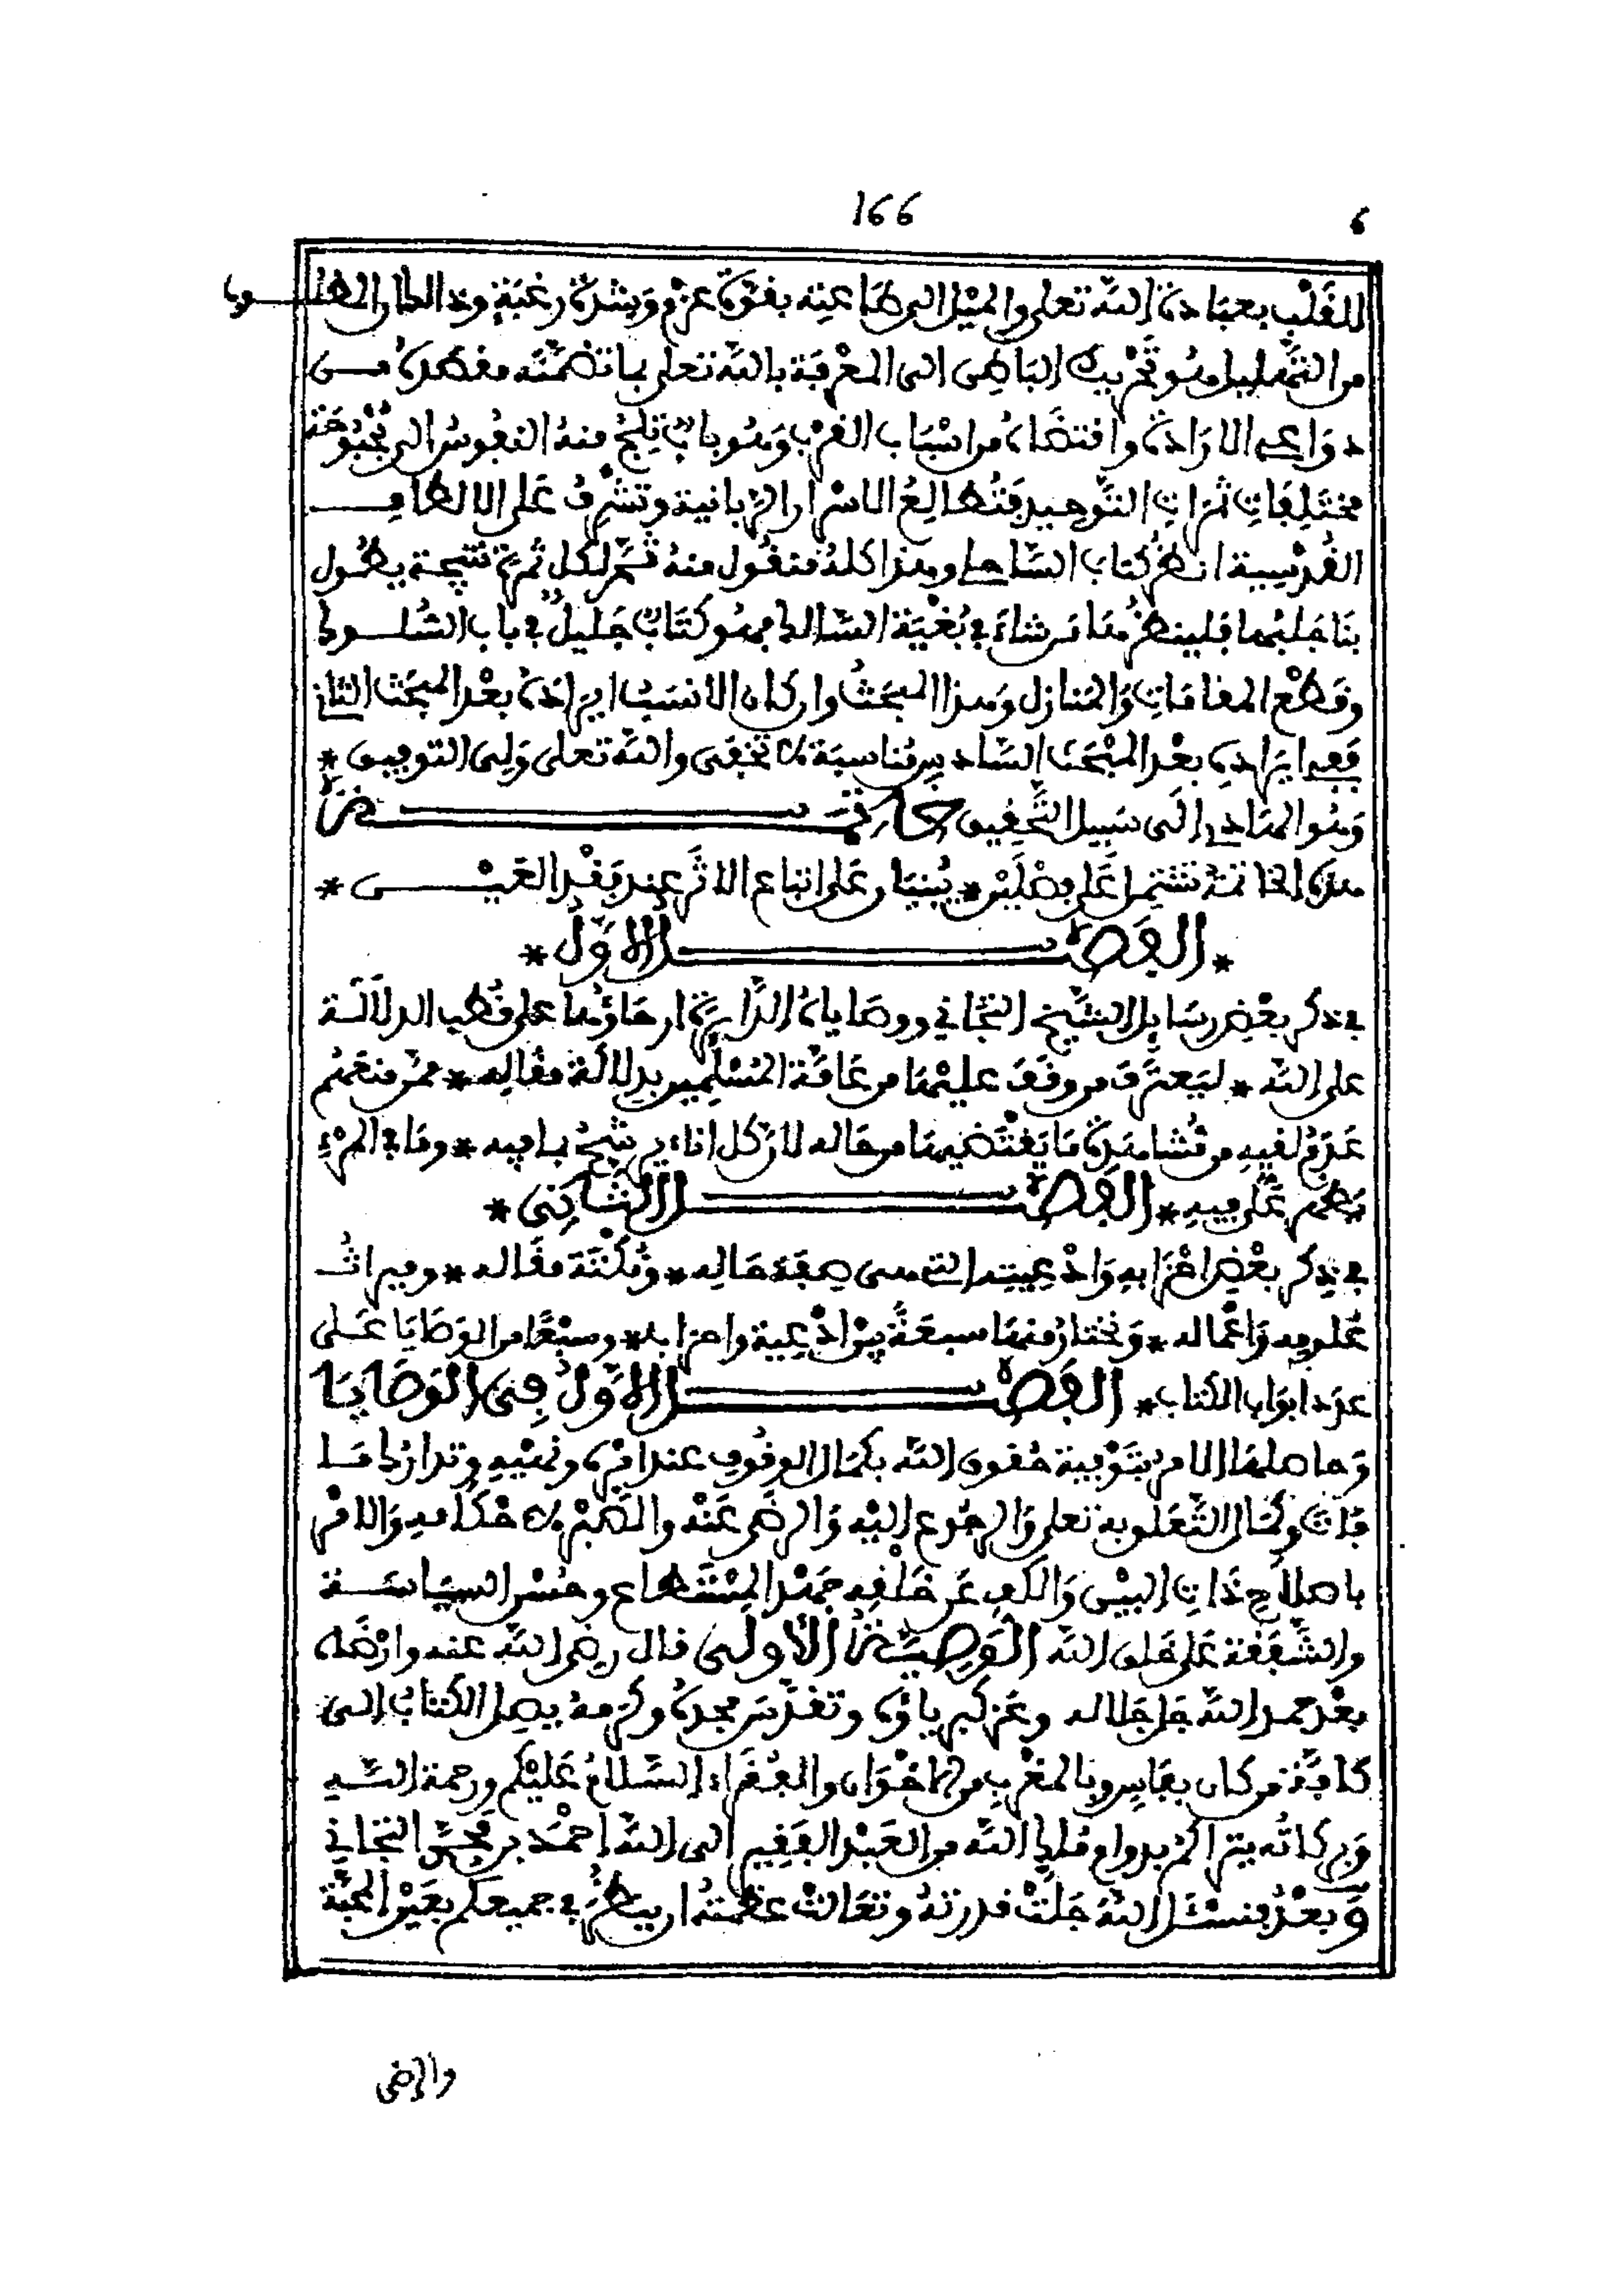 166
6
للقلب بعبادة الله تعلى والميل الى طاعته بقوة عزم وشدة رغبة وذالك ان المطلوب
من التهليل هو تحريك الباطن الى المعرفة بالله تعلى بما تضمنه مقصده من
دواعى الارادة واقتضاه من اسباب القرب وهو باب تلج منه النفوس الى
مختلفات ثمرات التوحيد فتطالع الاسرار الربانية وتشرف على الالطاف
القدسية انظر كتاب الساحلي وهذا كله منقول منه ثم لكل ثمرة نتيجة يطول
بنا جلبها فلينظرها من شاء في بغية السالك فهو كتاب جليل في باب السلوك
وقطع المقامات والمنازل وهذا المبحث وان كان الانسب ايراده بعد المبحث الثاني
ففى ايراده بعد المبحث السادس مناسبة لا تخفى والله تعلى ولى التوفيق *
وهو الهادي الى سبيل التحقيق خاتمة
هذه الخاتمة تشتمل على فصلين * يبنيان على اتباع الاثر عند فقد العين *
* الفصل الاول *
في ذكر بعض رسايل الشيخ التجاني ووصاياه الدايرة ارحاؤها على قطب الدلالة
على الله * ليعترف من وقف عليها من عامة المسلمين بدلالة مقاله * ممن منعهم
عدم لقيه من مشاهدة ما يقتضيها من حاله لان كل اناء يرشح بما فيه * وما في المرء
يظهر على فيه * الفصل الثاني *
في ذكر بعض احزابه وادعيته التى هى صفة حاله * ونكتة مقاله * وميراث
علومه واعماله * ونختار منها سبعة بين ادعية واحزاب * وسبعا من الوصايا على
عدد ابواب الكتاب * الفصل الاول فى الوصايا
وحاصلها الامر بتوفية حقوق الله بكمال الوقوف عند امره ونهيه وتدارك ما
فات وكمال التعلق به تعلى والرجوع اليه والرضى عنه والصبر لاحكامه والامر
باصلاح ذات البين والكف عن خلقه جهد المستطاع وحسن السياسة
والشفقة على خلق الله الوصية الاولى قال رضى الله عنه وارضاه
بعد حمد الله جل جلاله وعز كبرياؤه وتقدس مجده وكرمه يصل الكتاب الى
كافة من كان بفاس وبالمغرب من الاخوان والفقراء السلام عليكم ورحمة الله
وبركاته يتراكم بدوام ملك الله من العبد الفقير الى الله احمد بن محمد التجاني
وبعد فنسئل الله جلت قدرته وتعالت عظمته ان ينظر في جميعكم بعين المحبة
والرضى